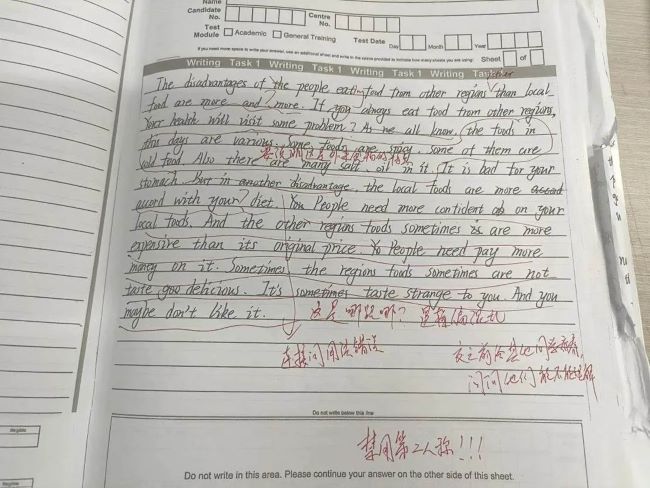 Name
Candidate No.
Centre No.
Test Module
Academic
General Training
Test Date
Day
Month
Year
If you need more space to write your answer, use an additional sheet and write in the space provided to indicate how many sheets you are using:
Sheet of
Writing Task 1 Writing Task 1 Writing Task 1 Writing Task 1
The disadvantages of the people eating food from other regions than local
food are more and more. If you always eat food from other regions,
Your health will visit some problem? As we all know, the foods in
this days are various. Some foods are spicy, some of them are
cold food. Also there are many salt, oil in it. It is bad for your
stomach. But in another disadvantage, the local foods are more accod
accord with your diet. You People need more confident ob on your
local foods. And the other regions foods sometimes is are more
expensive than its original price. Yo People need pay more
money on it. Sometimes the regions foods sometimes are not
taste goo delicious. It's sometimes taste strange to you. And you
maybe don't like it.
这是哪跟哪? 逻辑偏混乱
连接词用法错误
问问他们能不能理解
Do not write below this line
禁用第二人称!!!
Do not write in this area. Please continue your answer on the other side of this sheet.